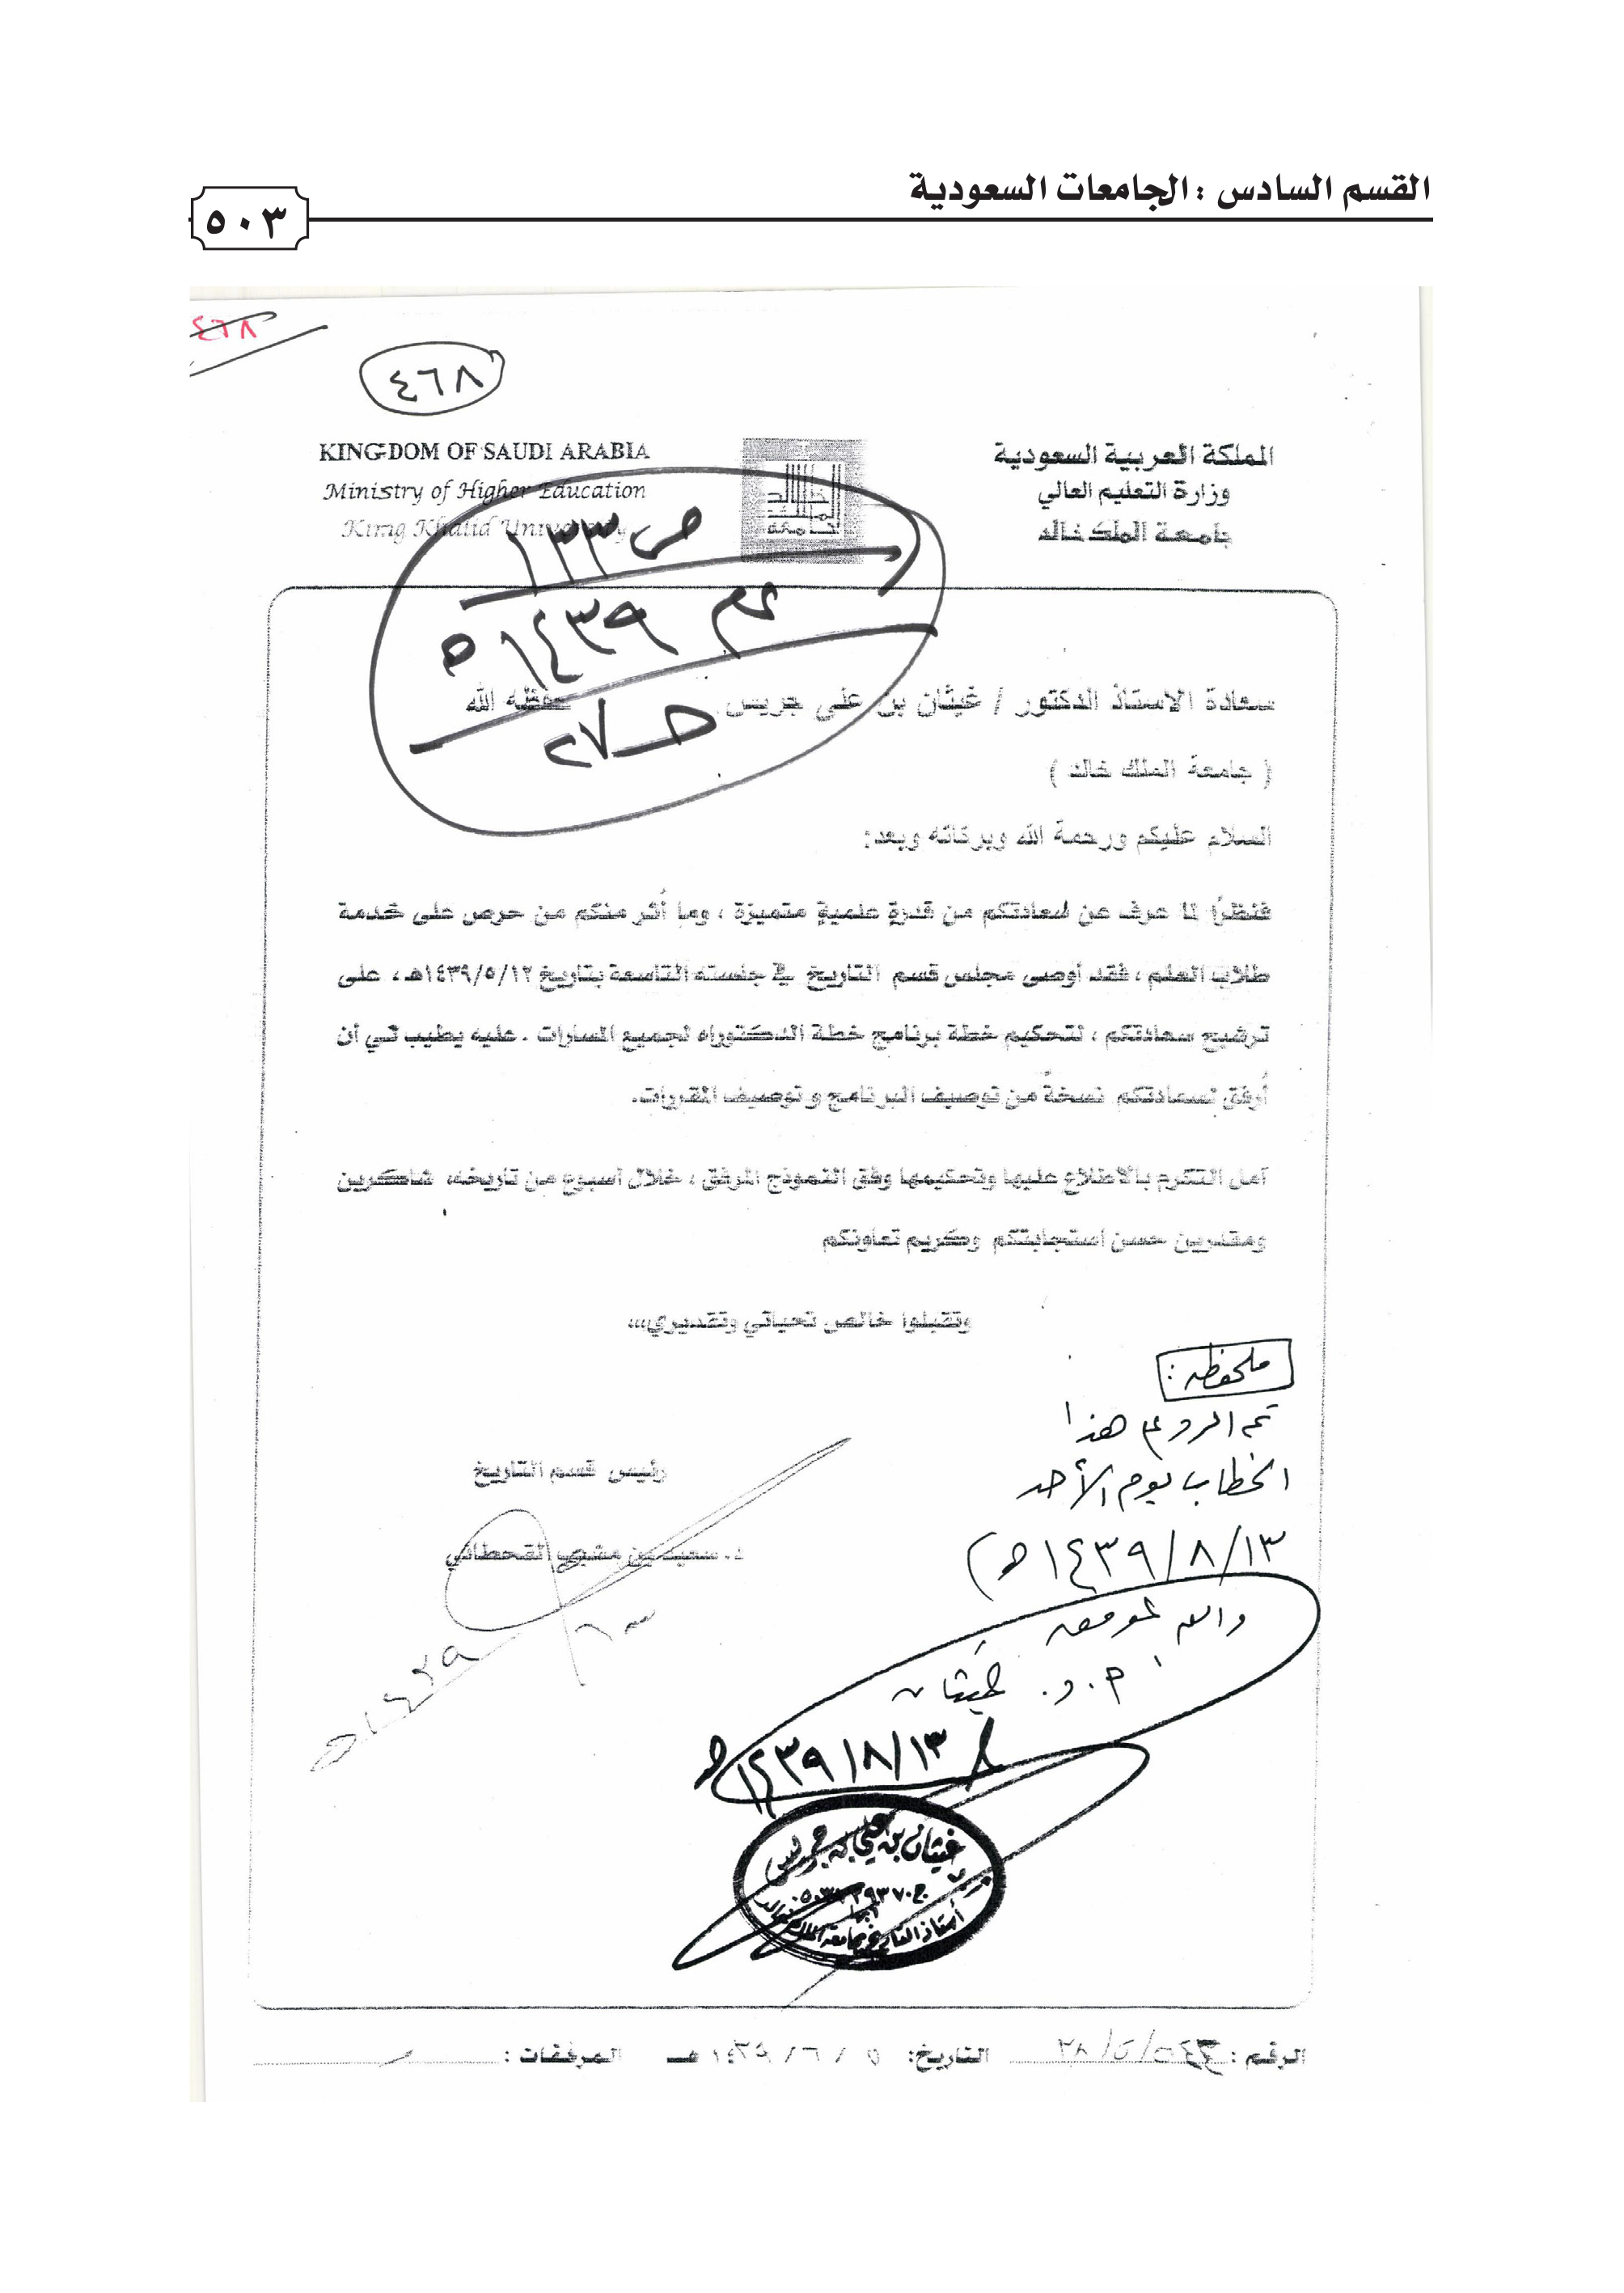 القسم السادس : الجامعات السعودية
٥٠٣
٤٦٨
٤٦٨
KINGDOM OF SAUDI ARABIA
Ministry of Higher Education
King Khalid University
المملكة العربية السعودية
وزارة التعليم العالي
جامعة الملك خالد
ص ١٣٣
١٤٣٩ هـ
سعادة الاستاذ الدكتور / غيثان بن علي جريس حفظه الله
( جامعة الملك خالد )
السلام عليكم ورحمة الله وبركاته وبعد:
فنظراً لما عرف عن سعادتكم من قدرةٍ علميةٍ متميزة ، وما أُثر منكم من حرص على خدمة
طلاب العلم ، فقد أوصى مجلس قسم التاريخ في جلسته التاسعة بتاريخ ١٤٣٩/٥/١٢هـ ، على
ترشيح سعادتكم ، لتحكيم خطة برنامج خطة الدكتوراه لجميع المسارات . عليه يطيب لي أن
أُرفق لسعادتكم نسخةً من توصيف البرنامج و توصيف المقررات.
آمل التكرم بالأطلاع عليها وتحكيمها وفق النموذج المرفق ، خلال أسبوع من تاريخه، شاكرين
ومقدرين حسن استجابتكم وكريم تعاونكم
وتقبلوا خالص تحياتي وتقديري،،،
ملحوظه :
تم الرد على هذا
الخطاب يوم الأحد
١٤٣٩/٨/١٣هـ)
والله الموفق
أ.د. غيثان
١٤٣٩/٨/١٣هـ
رئيس قسم التاريخ
د. سعيد بن مشبب القحطاني
غيثان بن علي بن جريس
أستاذ التاريخ بجامعة الملك خالد
الرقم :
التاريخ:
المرفقات :